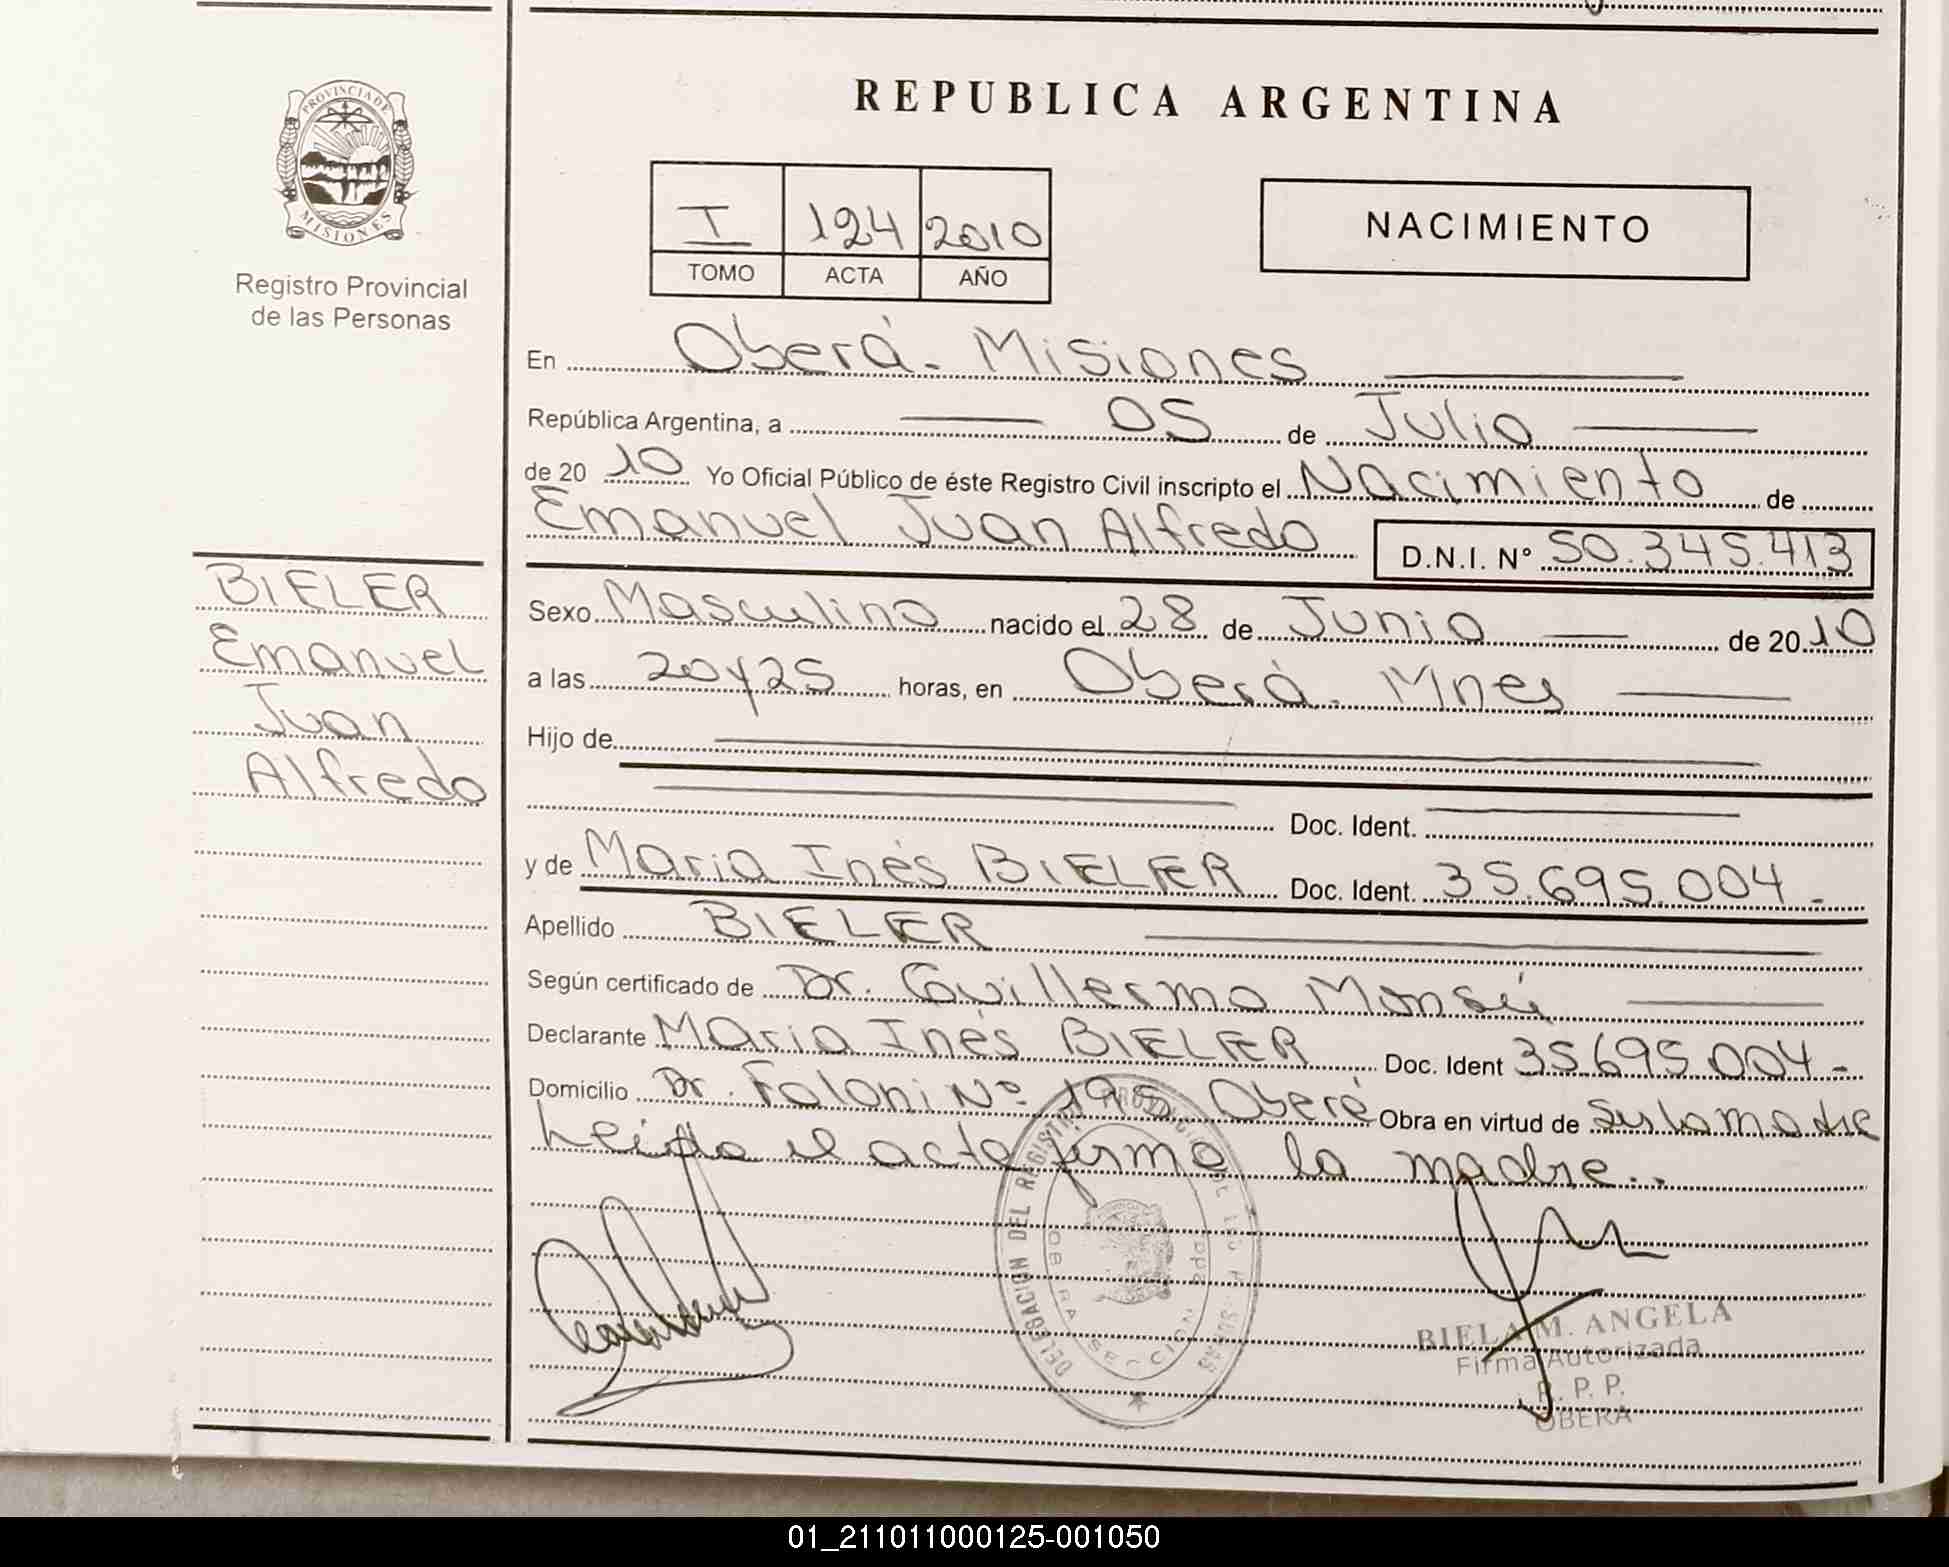 PROVINCIA DE
MISIONES
Registro Provincial
de las Personas
REPUBLICA ARGENTINA
I 124 2010
TOMO ACTA AÑO
NACIMIENTO
En Oberá - Misiones
República Argentina, a 05 de Julio
de 20 10 Yo Oficial Público de éste Registro Civil inscripto el Nacimiento de
Emanuel Juan Alfredo D.N.I. Nº 50.345.413
BIELER
Emanuel
Juan
Alfredo
Sexo Masculino nacido el 28 de Junio de 2010
a las 20y25 horas, en Oberá - Mnes
Hijo de
Doc. Ident.
y de Maria Inés BIELER Doc. Ident. 35.695.004 -
Apellido BIELER
Según certificado de Dr. Guillermo
Declarante Maria Inés BIELER Doc. Ident 35.695.004 -
Domicilio Dr. Nº 195 Oberá Obra en virtud de Ser la madre
Leida el acta firma la madre..
DELEGACION DEL REGISTRO PROVINCIAL
OBERA SECCION
BIELA M. ANGELA
Firma Autorizada
R. P. P.
OBERA
01_211011000125-001050